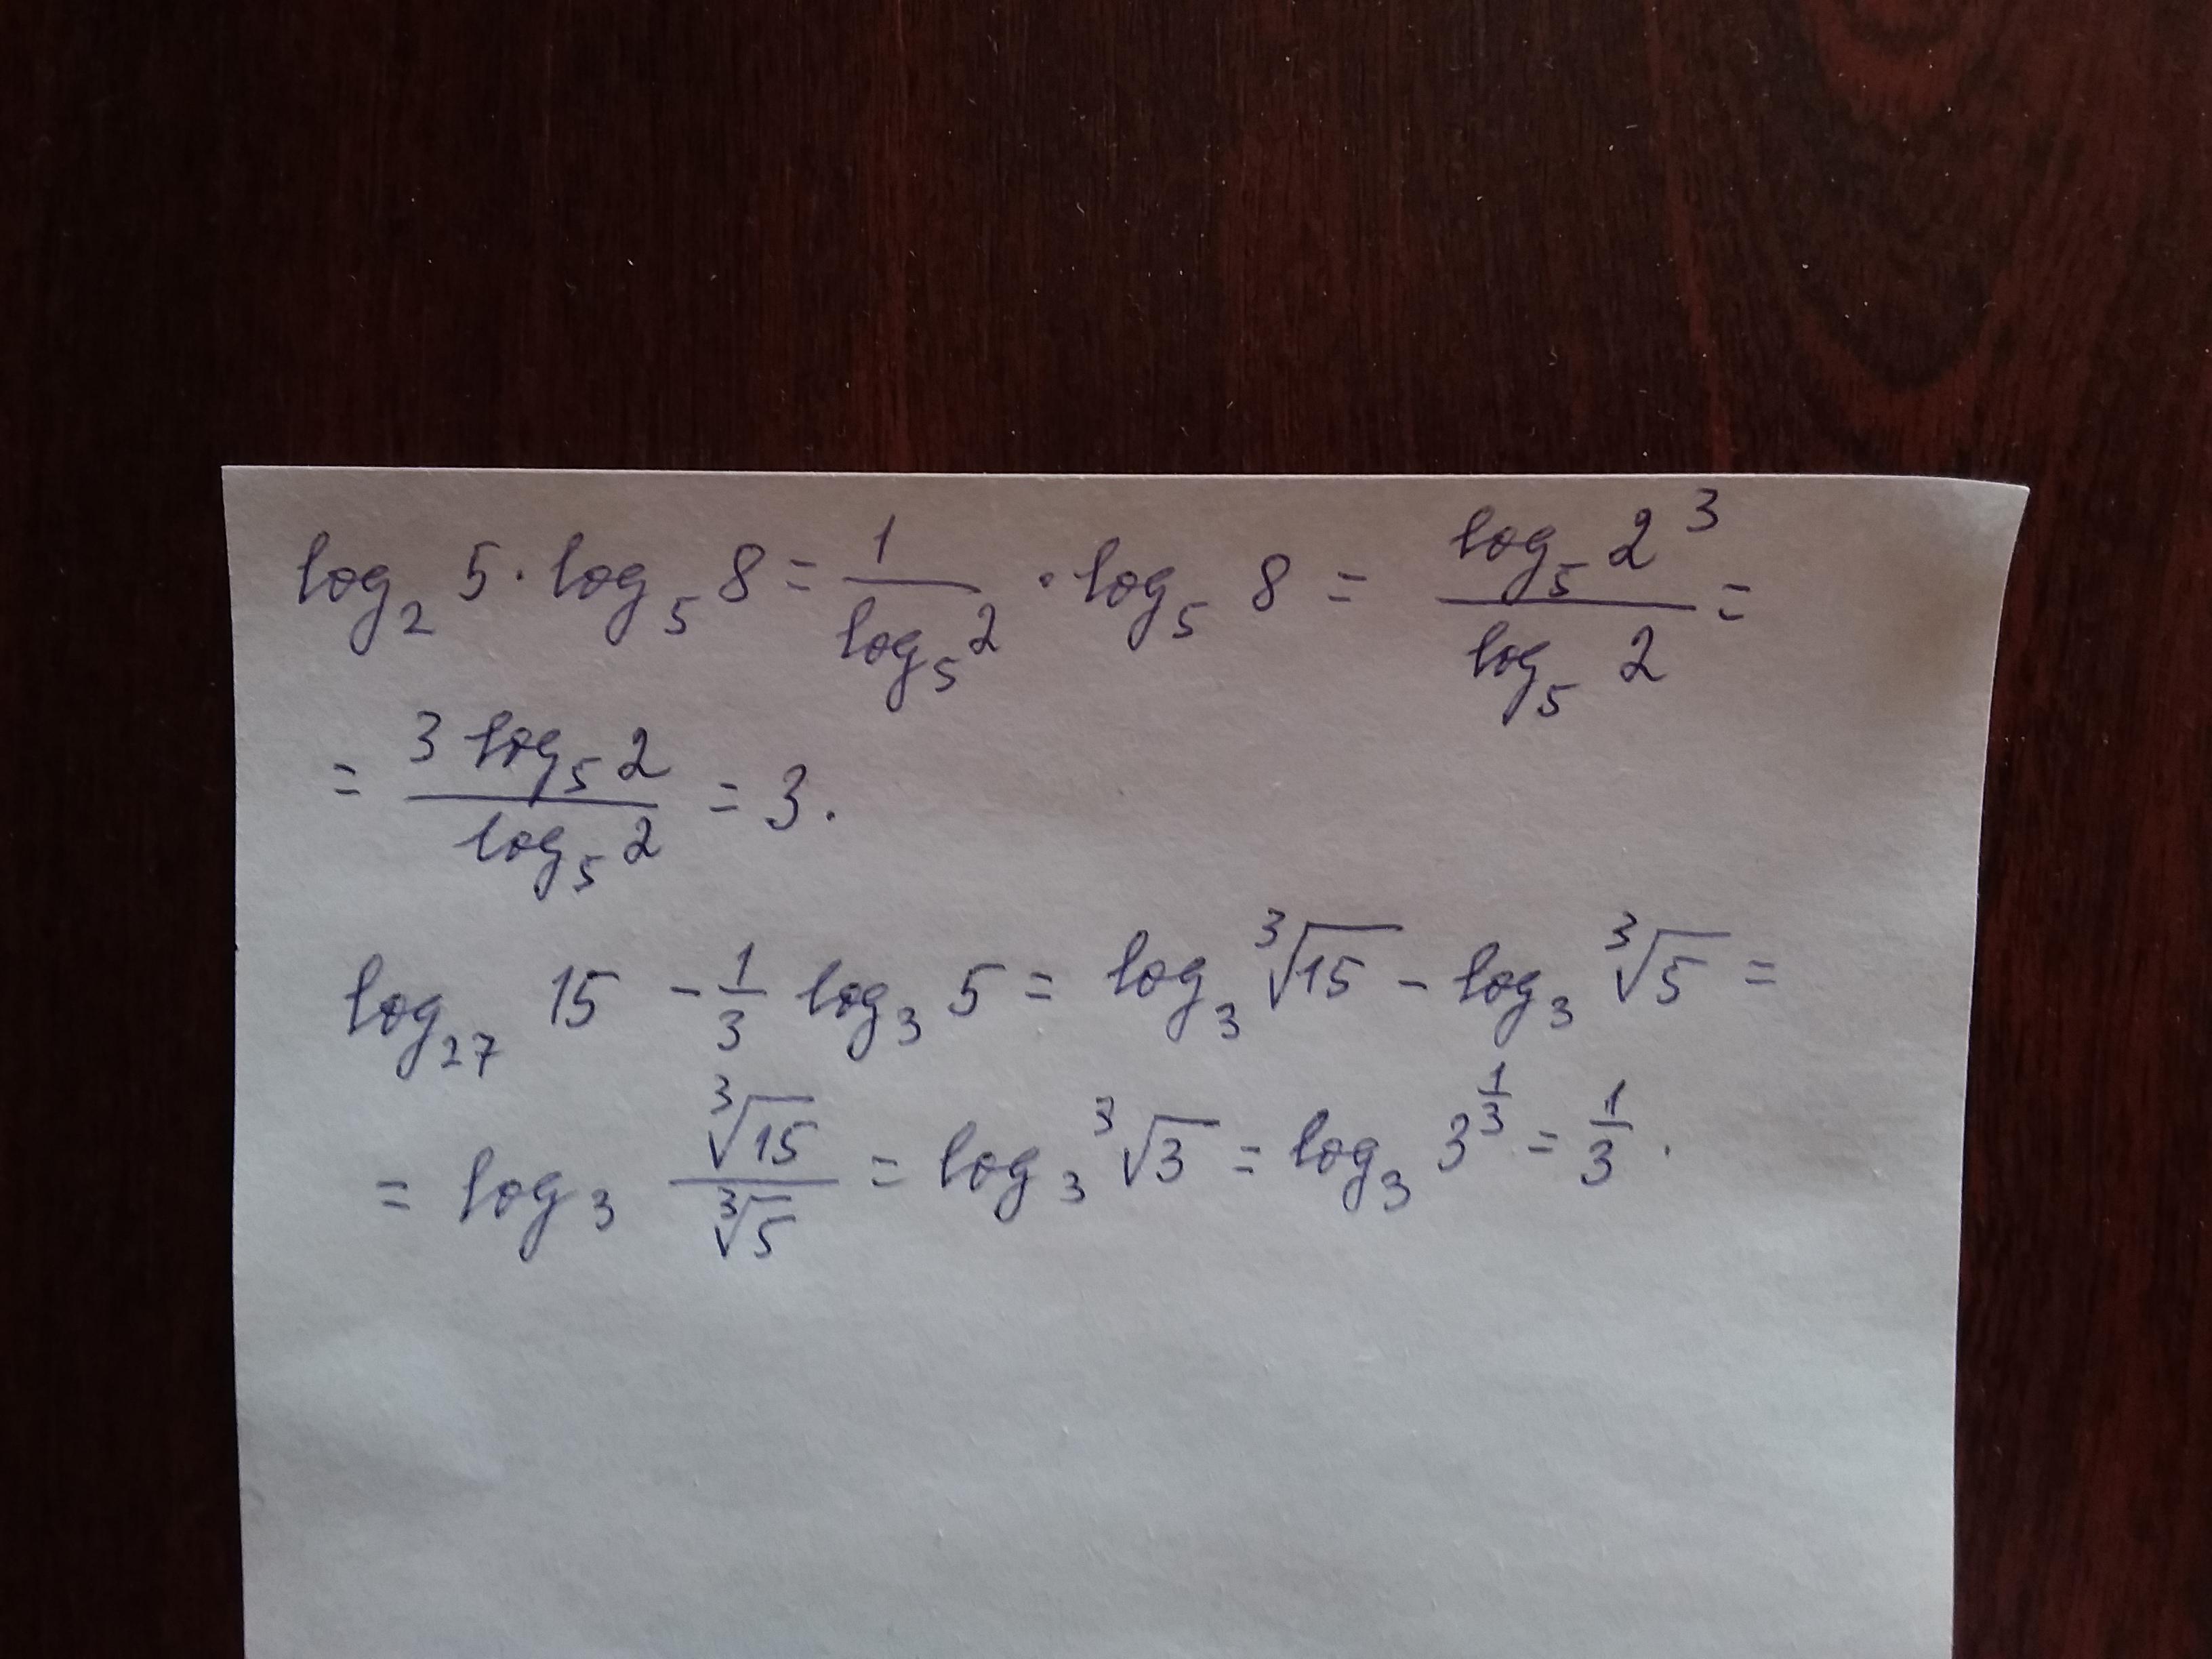 log₂ 5 · log₅ 8 = 1/log₅ 2 · log₅ 8 = log₅ 2³/log₅ 2 =
= 3 log₅ 2/log₅ 2 = 3.
log₂₇ 15 - 1/3 log₃ 5 = log₃ ∛15 - log₃ ∛5 =
= log₃ ∛15/∛5 = log₃ ∛3 = log₃ 3^(1/3) = 1/3.